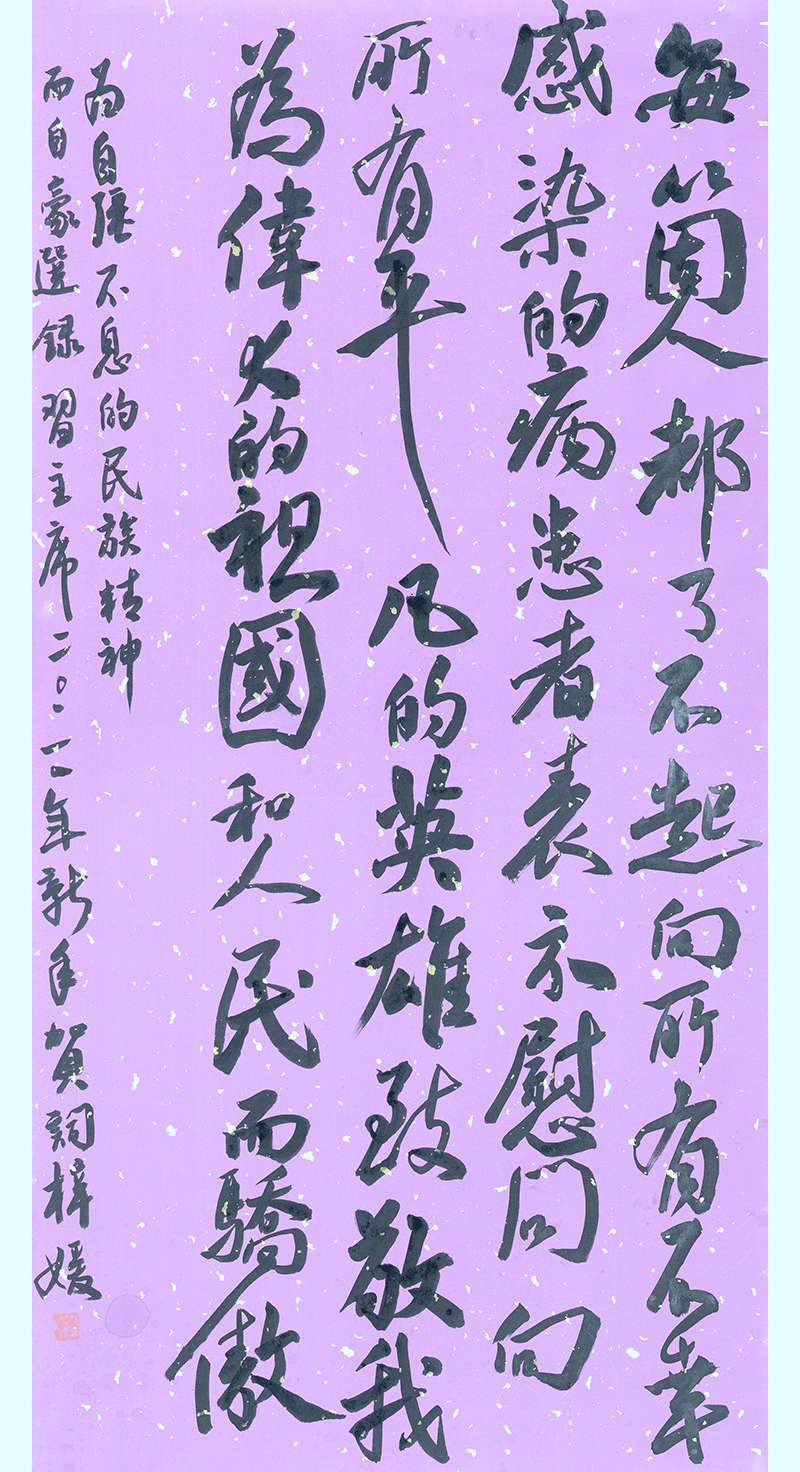 每箇人都了不起向所有不幸
感染的病患者表示慰問向
所有平凡的英雄致敬我
為偉大的祖國和人民而驕傲
為自强不息的民族精神
而自豪選録習主席二〇二一年新年賀詞梓媛